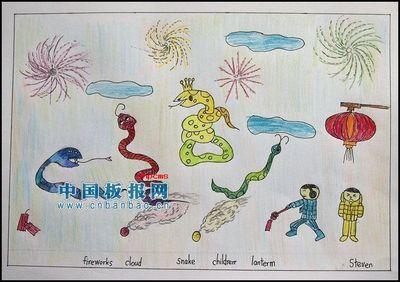 中国板报网
www.cnbanbao.cn
fireworks cloud snake children lanterm Steven